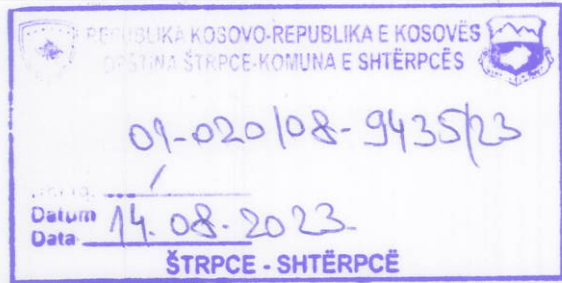 REPUBLIKA KOSOVO-REPUBLIKA E KOSOVËS
OPŠTINA ŠTRPCE-KOMUNA E SHTËRPCËS
01-020/08-9435/23
Datum
Data 14.08.2023
ŠTRPCE - SHTËRPCË